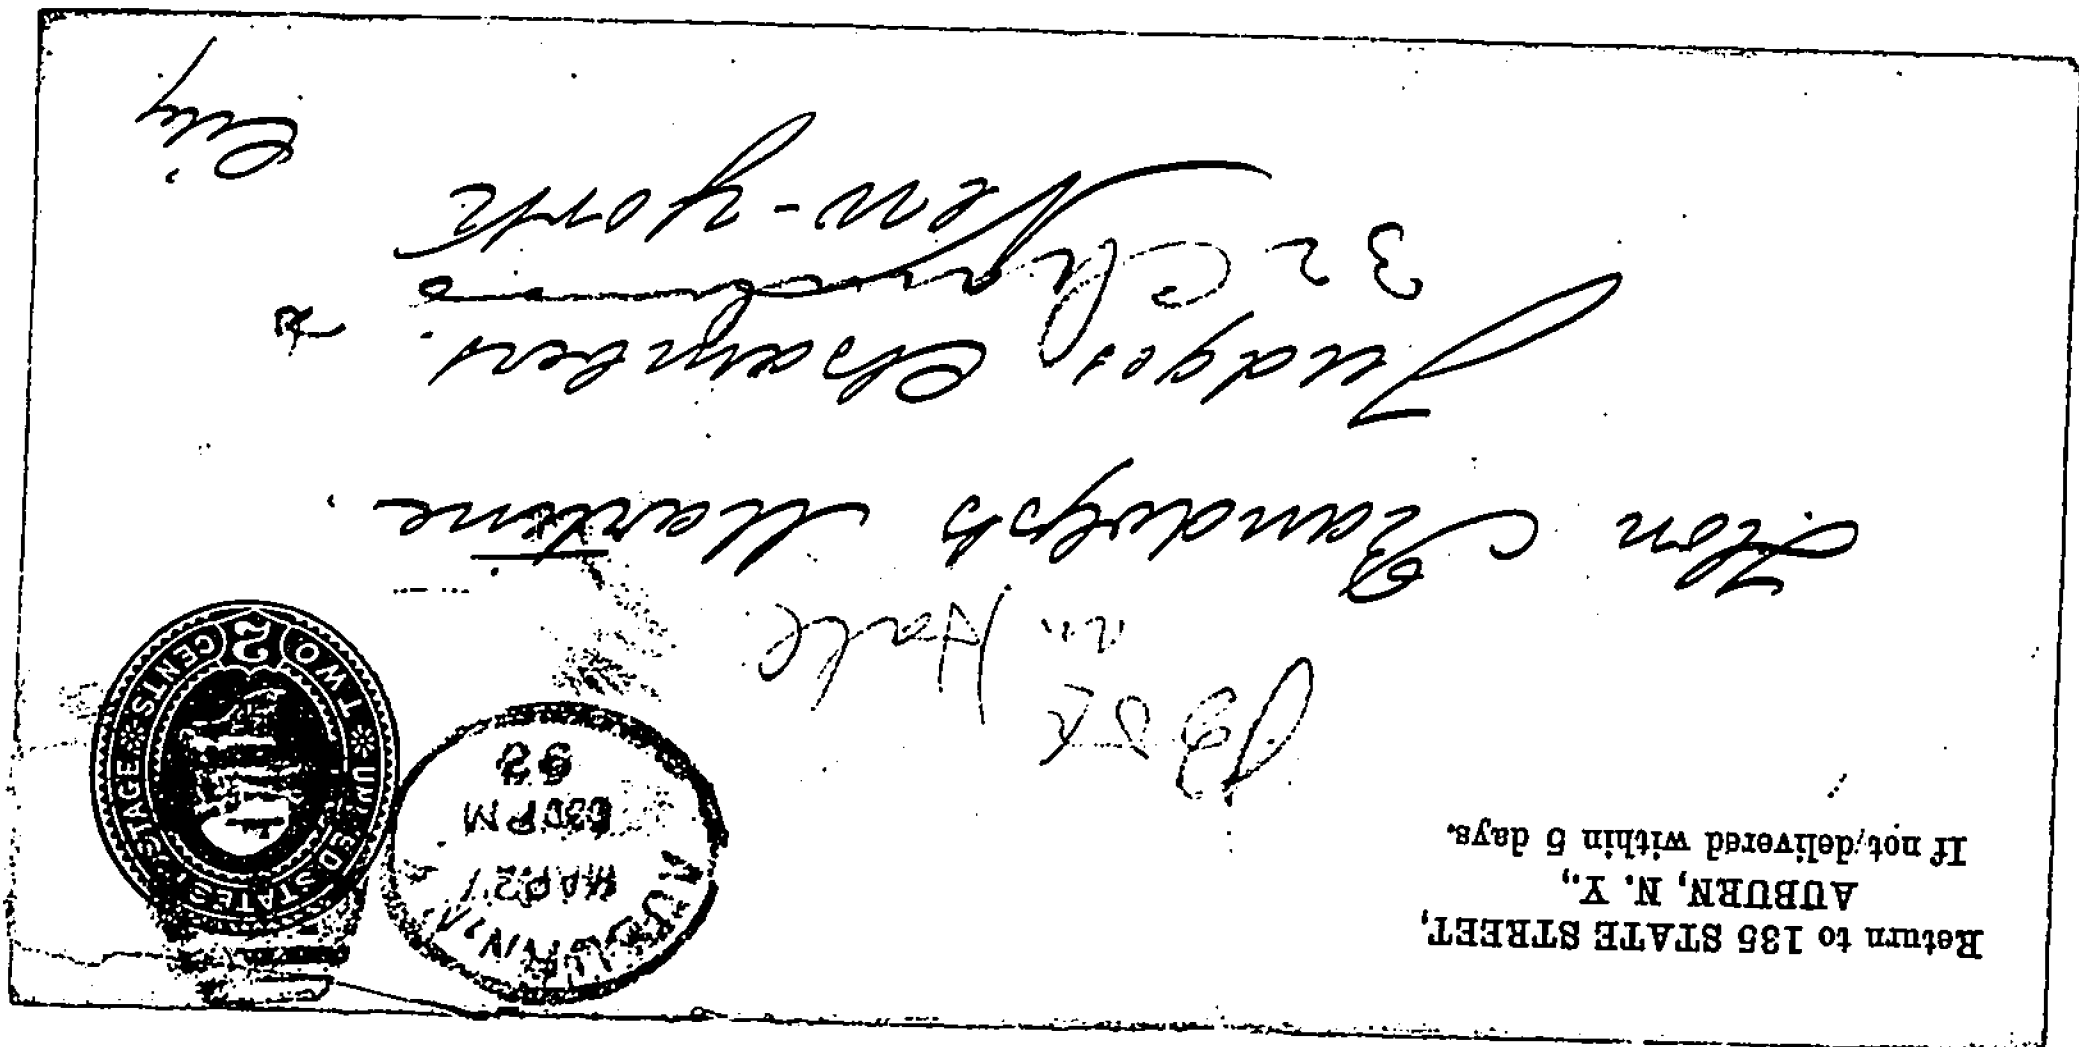 Return to 135 STATE STREET,
AUBURN, N. Y.,
If not delivered within 5 days.
AUBURN, N.
MAR 27
630PM
UNITED STATES POSTAGE
TWO 2 CENTS
Hall
Hon Randolph Martine.
Judges Chambers.
32 Chambers
New-York
City